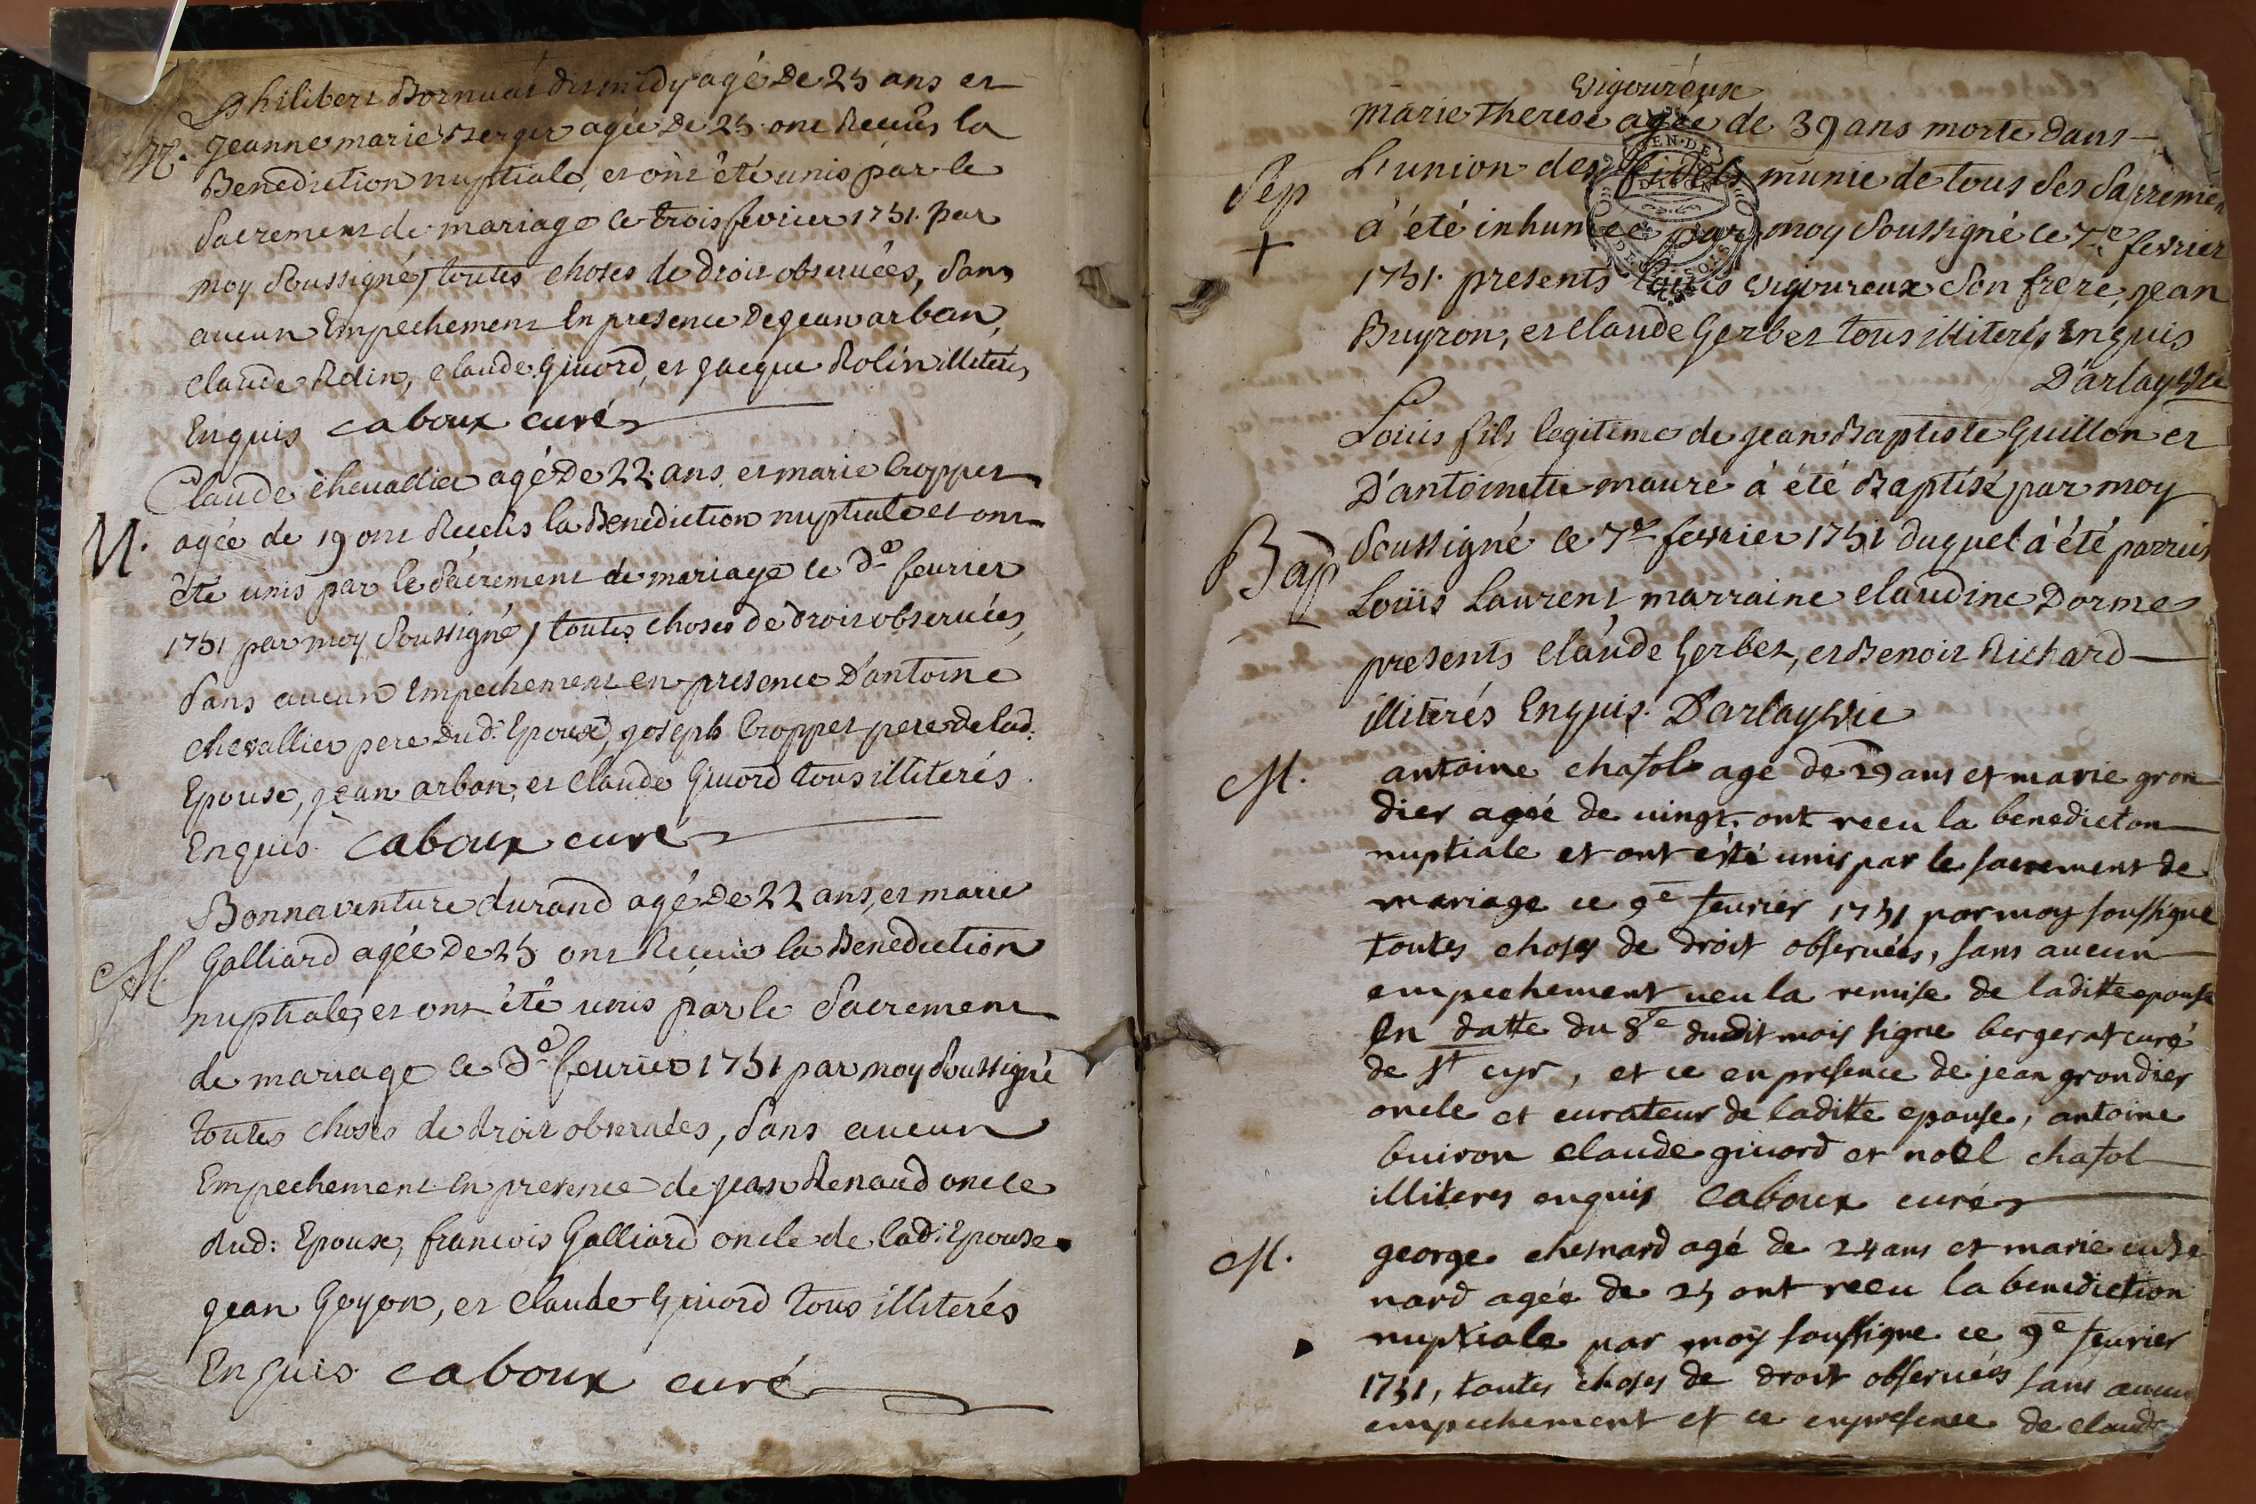 Philibert Bornuat dit midy agé de 25 ans et
M. Jeanne marie Berger agée de 25 ont Receüs la
Benediction nuptiale, et ont été unis par le
Sacrement de mariage ce trois fevrier 1751. par
moy Soussigné, toutes choses de droit observées, Sans
aucun Empechement En presence De jean arban,
Claude Rolin, claude givord, et jacque Rolin illiterés
Enquis caboux curé
Claude chevallier agé De 22 ans, et marie Croppet
M. agée de 19 ont Receüs la Benediction nuptiale et ont
été unis par le Sacrement de mariage ce 3e fevrier
1751 par moy Soussigné, toutes choses de droit observées,
Sans aucun Empechement en presence D'antoine
Chevallier pere dud: Epoux, joseph Croppet pere de lad:
Epouse, jean arban, et claude Givord tous illiterés
Enquis. caboux curé
Bonnaventure durand agé De 22 ans, et marie
M. Galliard agée De 25 ont Receüs la Benediction
nuptiale, et ont été unis par le Sacrement
de mariage ce 3e fevrier 1751 par moy Soussigné
toutes choses de droit observées, Sans aucun
Empechement En presence de jean Renaud oncle
dud: Epoux, francois Galliard oncle de lad: Epouse
jean Goyon, et claude Givord tous illiterés
Enquis caboux curé
Vigoureux
marie Therese agée de 39 ans morte dans
Sep L'union des fidels munie de tous Ses Sacremen
+ a été inhumée par moy Soussigné ce 7e fevrier
1751. presents Louis vigoureux Son frere, jean
Buyron, et claude Gerbet tous illiterés Enquis
D'arlay vic
Louis fils legitime de jean Baptiste Guillon et
D'antoinette maure à été Baptisé par moy
Bap Soussigné ce 7e fevrier 1751 duquel à été parrein
Louis Laurent marraine claudine Dorme
presents claude Gerbet, et Benoit Richard
illiterés Enquis. D'arlay vic
M. antoine chasol agé de 29 ans et marie gron
dier agée de uingt ont receu la benedicton
nuptiale et ont esté unis par le sacrement de
mariage ce 9e feurier 1751 par moy soussigne
toutes choses de droit obseruées, sans aucun
empechement ueu la remise de laditte epouse
En datte du 8e dudit mois signe bergerat curé
de st cyr, et ce en presence de jean grondier
oncle et curateur de laditte epouse, antoine
buiron claude giuord et noel chasol
illiteres enquis caboux curé
M. george chesnard agé de 24 ans et marie
nard agée de 25 ont receu la benediction
nuptiale par moy soussigne ce 9e feurier
1751, toutes choses de droit obseruées sans aucun
empechement et ce en presence de claude